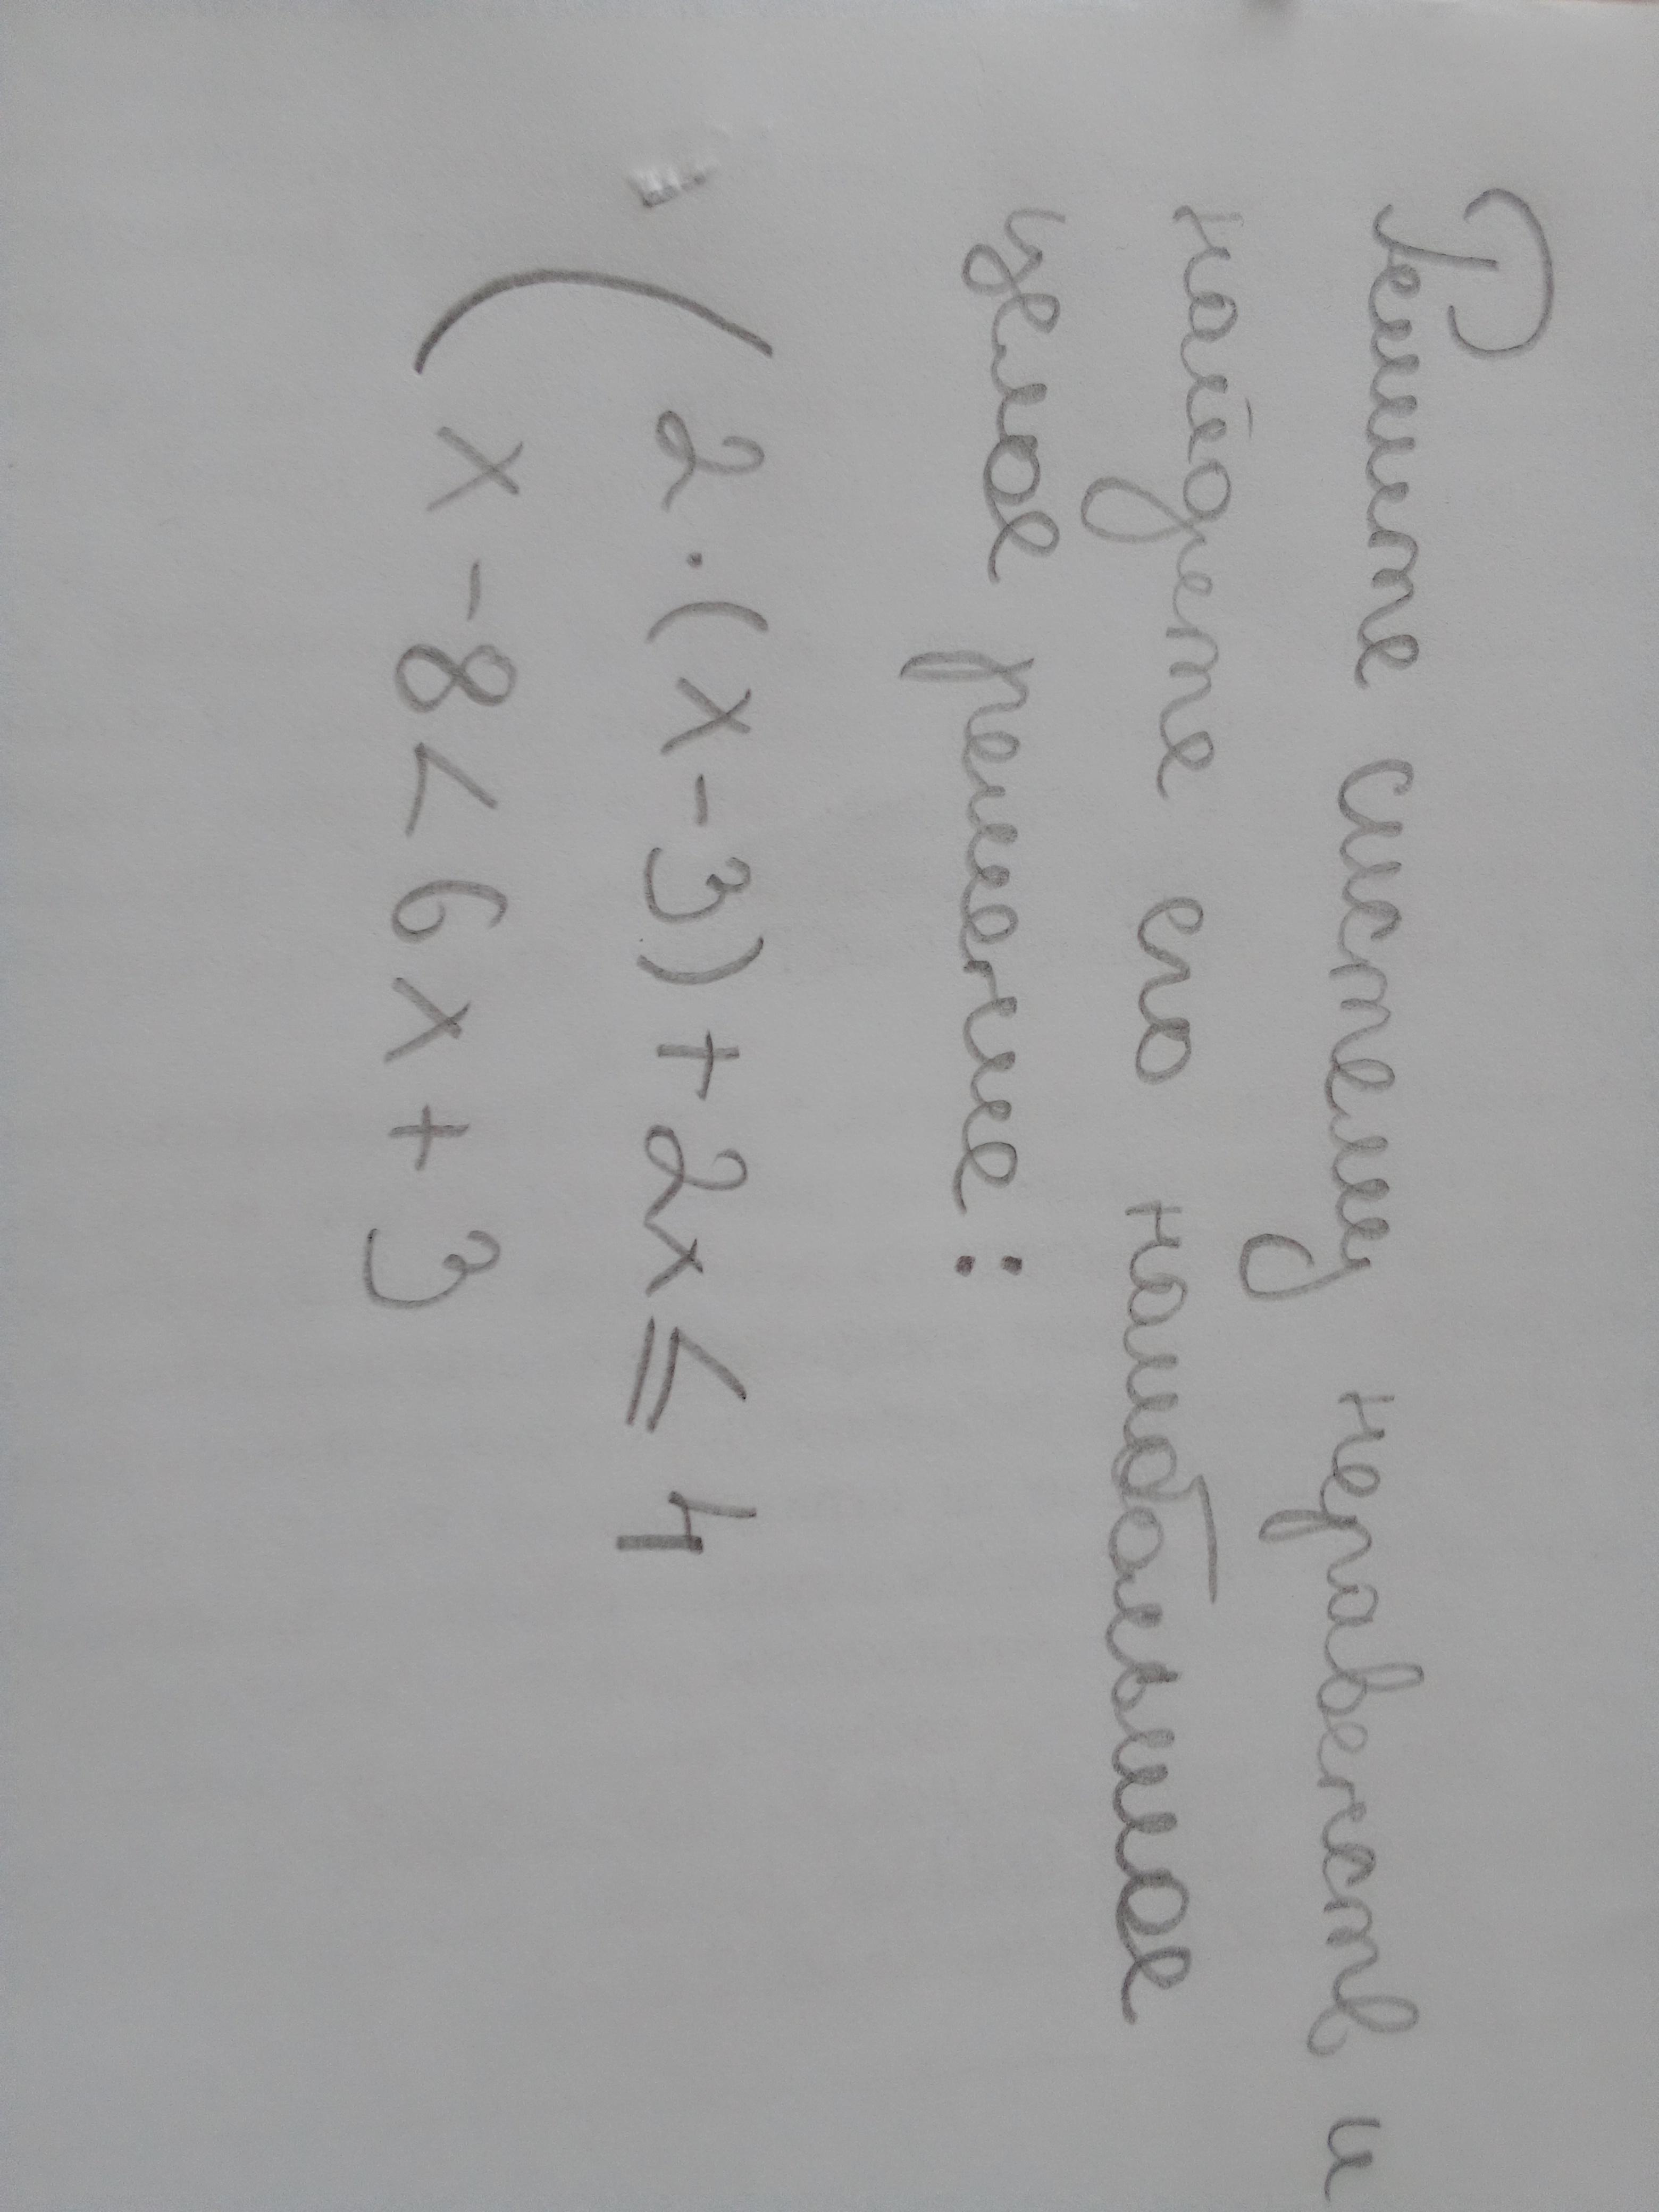 Решите систему неравенств и
найдите его наибольшое
целое решение:
( 2·(x-3)+2x≤4
x-8<6x+3